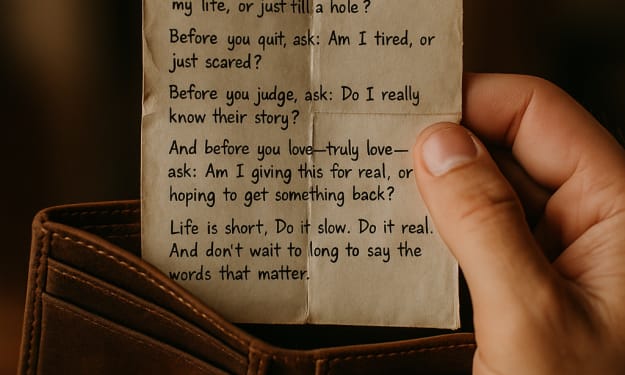 my life, or just till a hole?
Before you quit, ask: Am I tired, or
just scared?
Before you judge, ask: Do I really
know their story?
And before you love—truly love—
ask: Am I giving this for real, or
hoping to get something back?
Life is short, Do it slow. Do it real.
And don't wait to long to say the
words that matter.